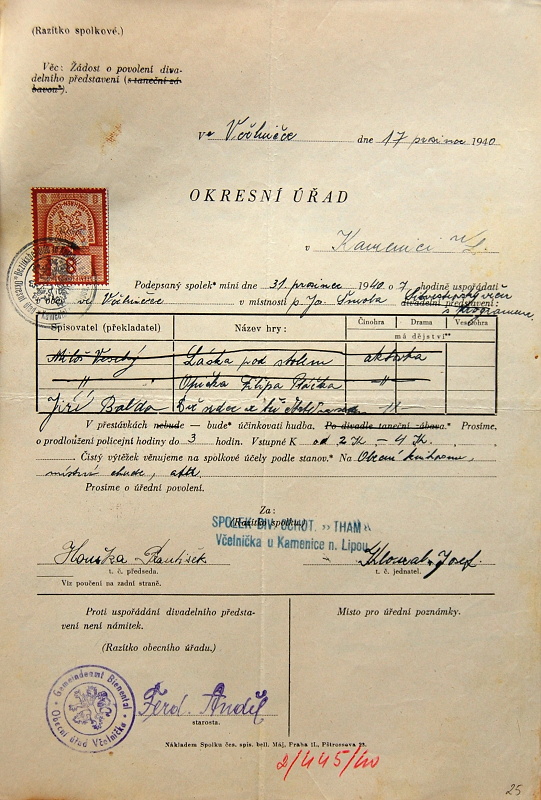 (Razítko spolkové.)
Věc: Žádost o povolení diva-
delního představení (s taneční zá-
bavou*).
Ve Včelničce dne 17 prosince 1940
OKRESNÍ ÚŘAD
v Kamenici n/L.
Podepsaný spolek míní dne 31. prosince 1940 o 7 hodině uspořádati
v obci ve Včelničce v místnosti p. Jos. Smola divadelní představení:
Silvestrovský večer
s programem
Spisovatel (překladatel) Název hry: Činohra Drama Veselohra
má dějství**
Miloš Veselý Láska pod stolem aktovka
" Opička Filipa Ptáčka "
Jiří Balda
V přestávkách nebude — bude* účinkovati hudba. Po divadle taneční zábava.* Prosíme,
o prodloužení policejní hodiny do 3 hodin. Vstupné K od 2 K – 4 K.
Čistý výtěžek věnujeme na spolkové účely podle stanov.* Na Obecní knihovnu,
místní chudé, atd.
Prosíme o úřední povolení.
Za:
(Razítko spolku)
SPOLEK DIV. OCHOT. „THAM"
Včelnička u Kamenice n. Lipou
Houska František
t. č. předseda.
Klouval Josef.
t. č. jednatel.
Viz poučení na zadní straně.
Proti uspořádání divadelního představ-
ení není námitek.
(Razítko obecního úřadu.)
Místo pro úřední poznámky.
Gemeindeamt Bienental
Obecní úřad Včelnička
Ferd. Anděl
starosta.
Nákladem Spolku čes. spis. bell. Máj, Praha II., Pštrossova 23.
2/445/40
25